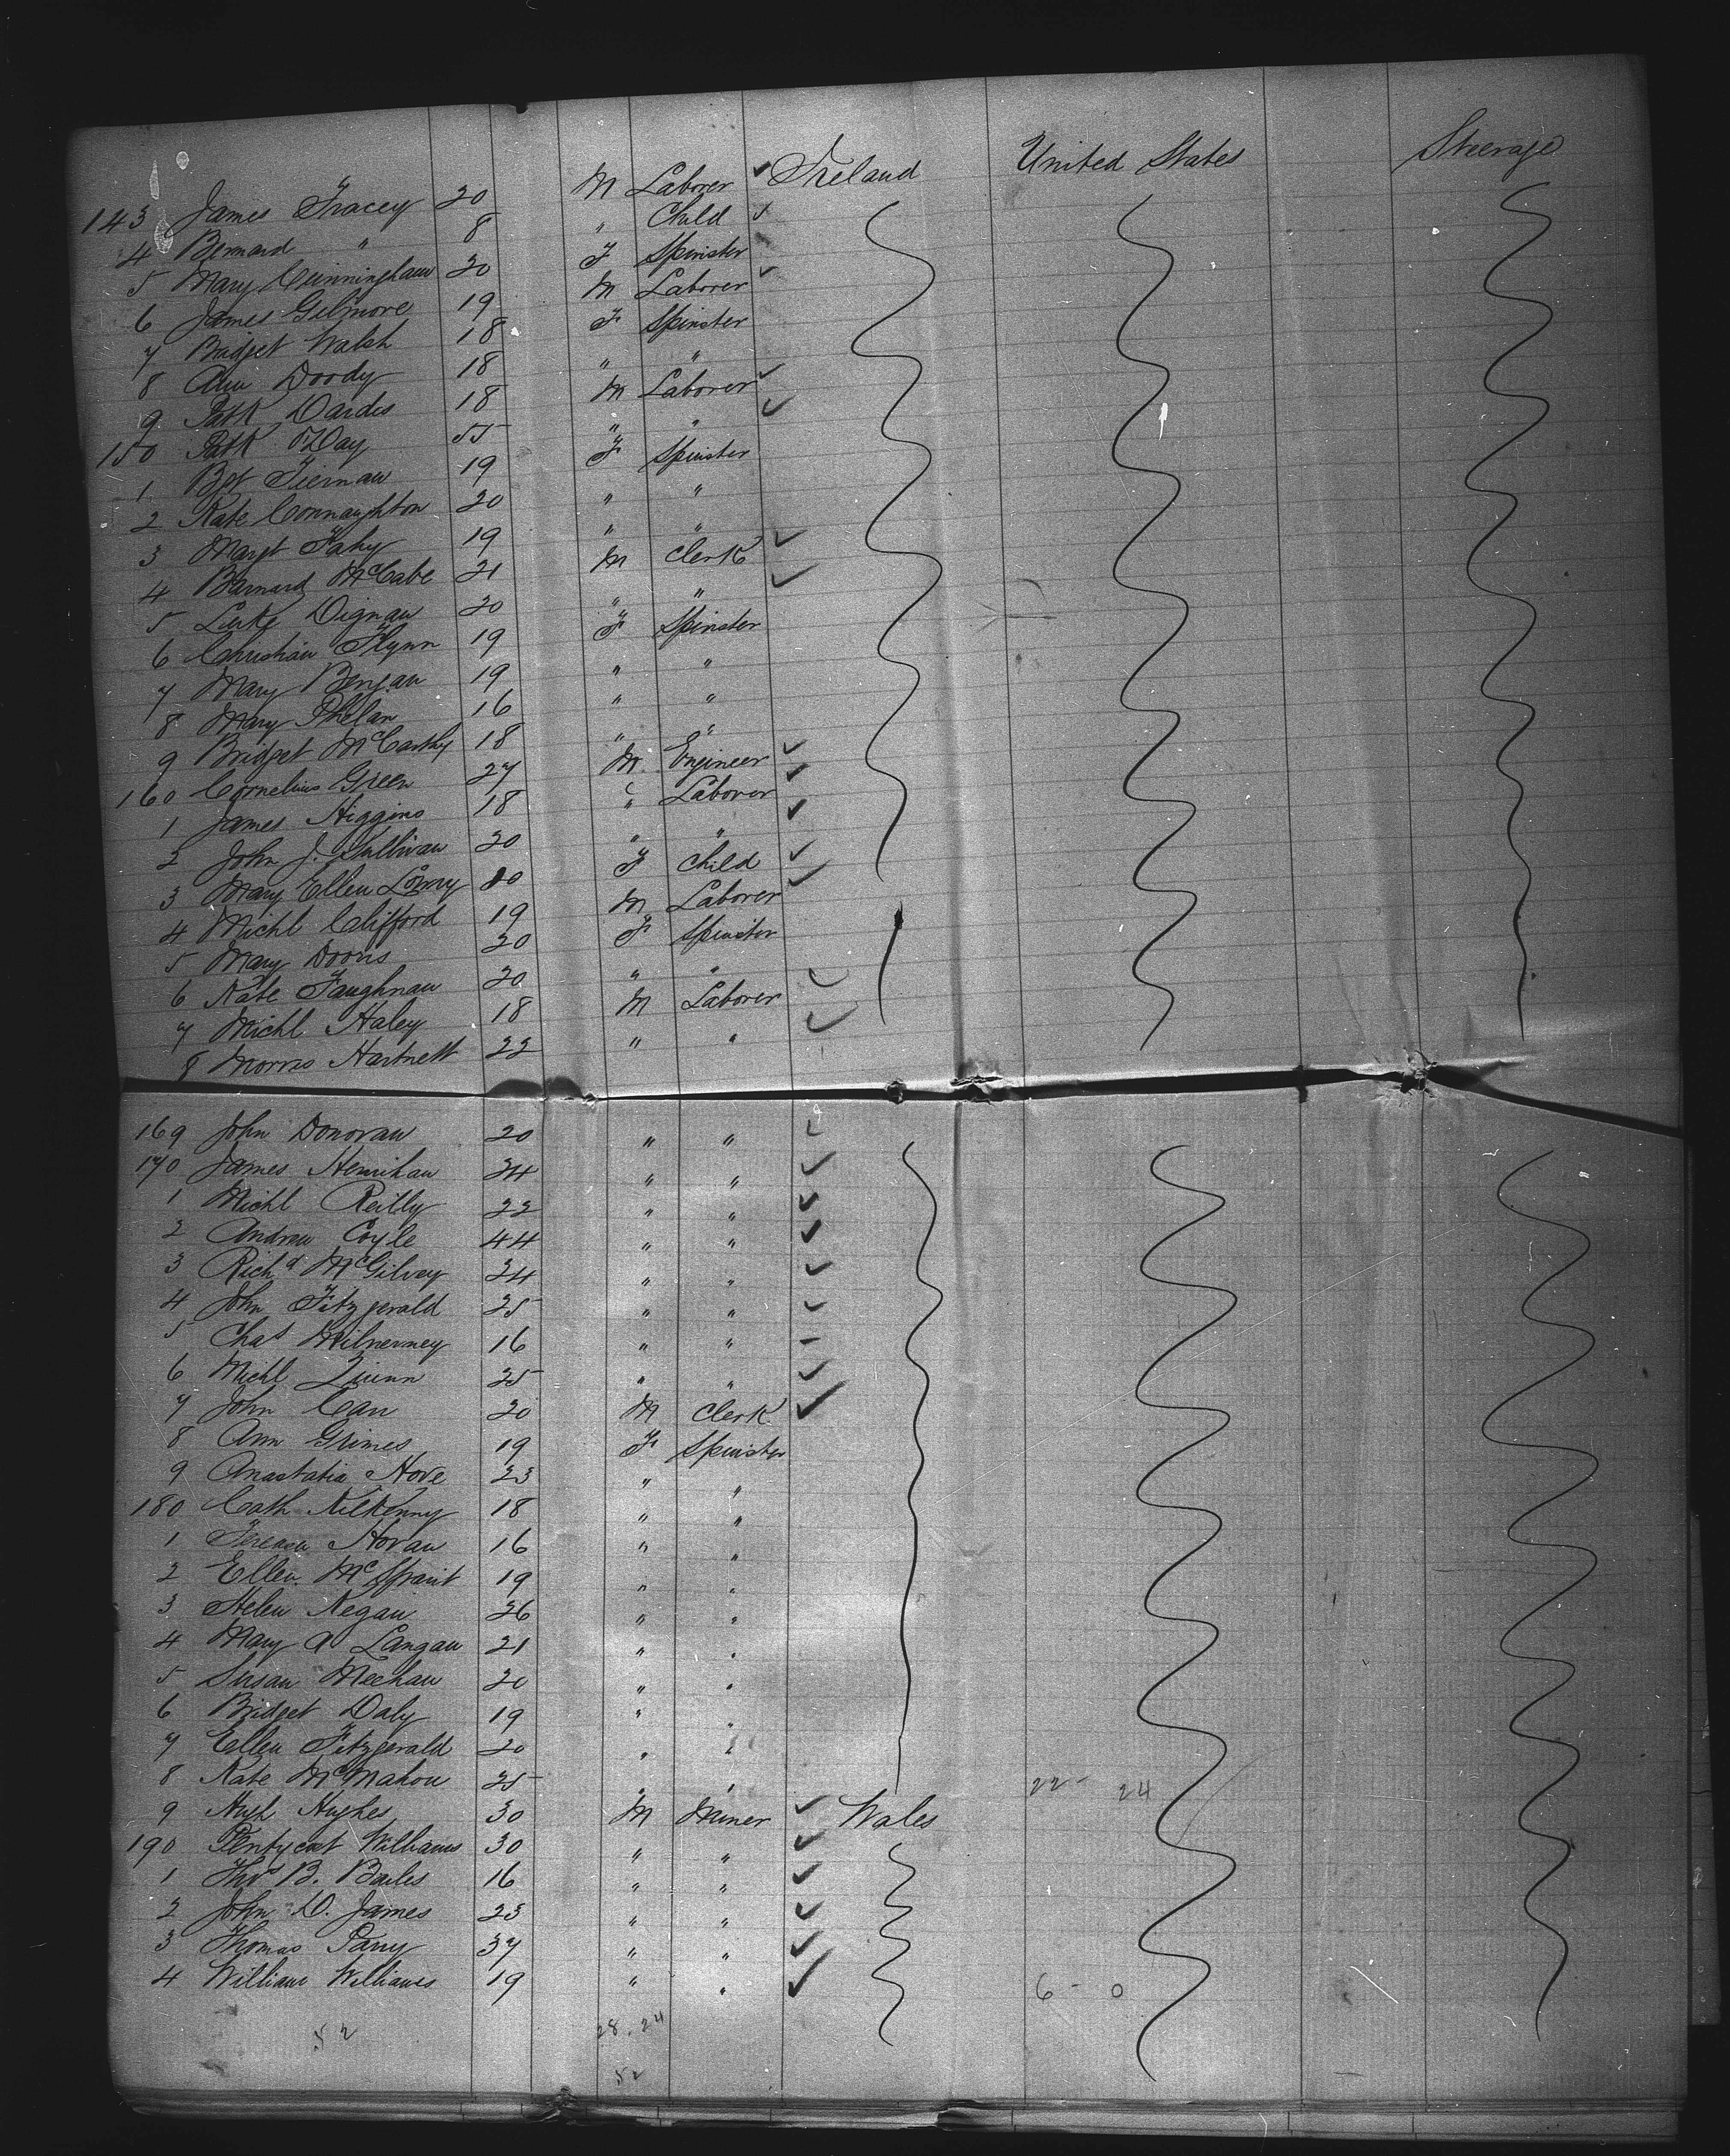 143 James Tracey 20 M Laborer ✓ Ireland United States Steerage
4 Bernard " 8 " Child ✓
5 Mary Cunningham 20 F Spinster
6 James Gilmore 19 M Laborer ✓
7 Bridget Walsh 18 F Spinster
8 Ann Doody 18 " "
9 Patk Dardis 18 M Laborer ✓
150 Patk Day 55 " " ✓
1 Bgt Tiernan 19 F Spinster
2 Kate Connaughton 20 " "
3 Margt Fahy 19 " "
4 Barnard McCabe 21 M Clerk ✓
5 Luke Dignan 20 " " ✓
6 Flynn 19 F Spinster
7 Mary 19 " "
8 Mary Phelan 16 " "
9 Bridget McCarthy 18 " "
160 Cornelius Green 27 M Engineer ✓
1 James Higgins 18 " Laborer ✓
2 John J. Sullivan 20 " " ✓
3 Mary Ellen 10 F Child ✓
4 Michl Clifford 19 M Laborer ✓
5 Mary Doris 20 F Spinster
6 Kate Faughnan 20 " "
7 Michl Haley 18 M Laborer ✓
8 Morris Hartnett 22 " " ✓
169 John Donovan 20 " " ✓
170 James Henihan 24 " " ✓
1 Michl Reilly 22 " " ✓
2 Andrew Coyle 44 " " ✓
3 Richd McGilvey 24 " " ✓
4 John Fitzgerald 25 " " ✓
5 Chas McInerney 16 " " –
6 Michl Quinn 25 " " ✓
7 John Carr 20 M Clerk ✓
8 Ann Grimes 19 F Spinster
9 Anastatia Hove 23 " "
180 Cath Kilkenny 18 " "
1 Teresa Horan 16 " "
2 Ellen 19 " "
3 Helen Negan 26 " "
4 Mary A Langan 21 " "
5 Susan Meehan 20 " "
6 Bridget Daly 19 " "
7 Ellen Fitzgerald 20 " "
8 Kate McMahon 25 " " 22 - 24
9 Hugh Hughes 30 M Miner ✓ Wales
190 Pentycost Williams 30 " " ✓
1 Thos B. Bailes 16 " " ✓
2 John D. James 23 " " ✓
3 Thomas Parry 37 " " ✓
4 William Williams 19 " " ✓ 6 - 0
52 28.24
52